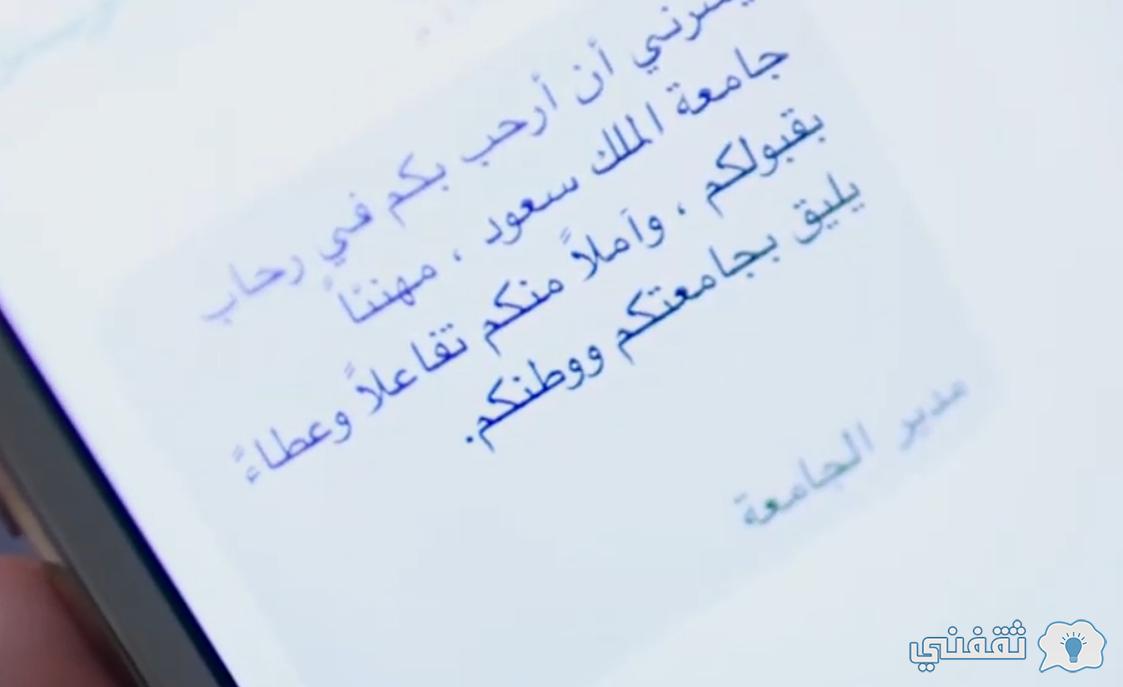 يسرني أن أرحب بكم في رحاب
جامعة الملك سعود ، مهنئاً
بقبولكم ، وآملاً منكم تفاعلاً وعطاءً
يليق بجامعتكم ووطنكم.
مدير الجامعة
ثقفني